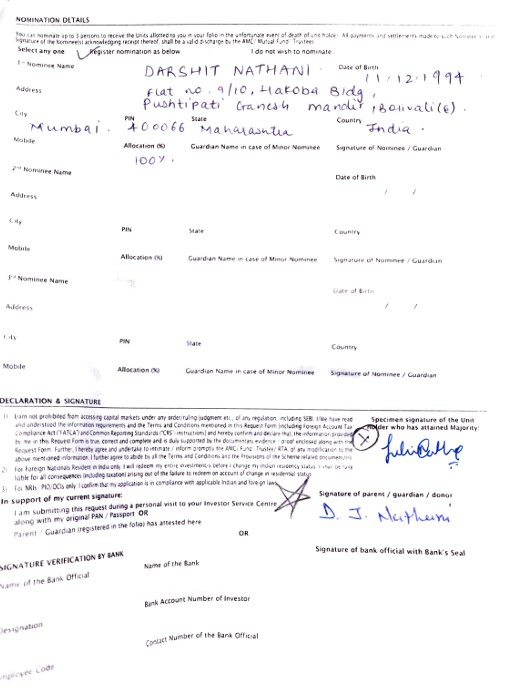 NOMINATION DETAILS
You can nominate up to 3 persons to receive the Units allotted to you in your folio in the unfortunate event of death of unit holder. All payments and settlements made to such Nominee
Signature of the Nominee(s) acknowledging receipt thereof, shall be a valid discharge by the AMC/ Mutual Fund/ Trustees
Select any one Register nomination as below I do not wish to nominate
1st Nominee Name DARSHIT NATHANI Date of Birth 11.12.1994
Address Flat no. 9/10, Hakoba Bldg,
Pushtipati Ganesh mandir, Borivali(E).
City Mumbai. PIN 400066 State Maharashtra Country India.
Mobile Allocation (%) 100%. Guardian Name in case of Minor Nominee Signature of Nominee / Guardian
2nd Nominee Name Date of Birth / /
Address
City PIN State Country
Mobile Allocation (%) Guardian Name in case of Minor Nominee Signature of Nominee / Guardian
3rd Nominee Name Date of Birth / /
Address
City PIN State Country
Mobile Allocation (%) Guardian Name in case of Minor Nominee Signature of Nominee / Guardian
DECLARATION & SIGNATURE
1) I am not prohibited from accessing capital markets under any order/ruling/judgment etc., of any regulation, including SEBI. I/We have read
and understood the information requirements and the Terms and Conditions mentioned in this Request Form (including Foreign Account Tax
Compliance Act ('FATCA') and Common Reporting Standards ('CRS') instructions) and hereby confirm and declare that the information provided
by me in this Request Form is true, correct and complete and is duly supported by the documentary evidence / proof enclosed along with the
Request Form. Further, I hereby agree and undertake to intimate / inform promptly the AMC/ Fund/ Trustee/ RTA of any modification to the
above mentioned information. I further agree to abide by all the Terms and Conditions and the Provisions of the Scheme related document(s)
2) For Foreign Nationals Resident in India only: I will redeem my entire investment/s before I change my Indian residency status. I shall be fully
liable for all consequences (including taxation) arising out of the failure to redeem on account of change in residential status
3) For NRIs/ PIO/OCIs only: I confirm that my application is in compliance with applicable Indian and foreign laws
Specimen signature of the Unit
holder who has attained Majority:
In support of my current signature:
I am submitting this request during a personal visit to your Investor Service Centre
along with my original PAN / Passport OR
Parent / Guardian (registered in the folio) has attested here
Signature of parent / guardian / donor
D. J. Nathani
OR
SIGNATURE VERIFICATION BY BANK
Signature of bank official with Bank's Seal
Name of the Bank Official Name of the Bank
Bank Account Number of Investor
Designation Contact Number of the Bank Official
Employee Code